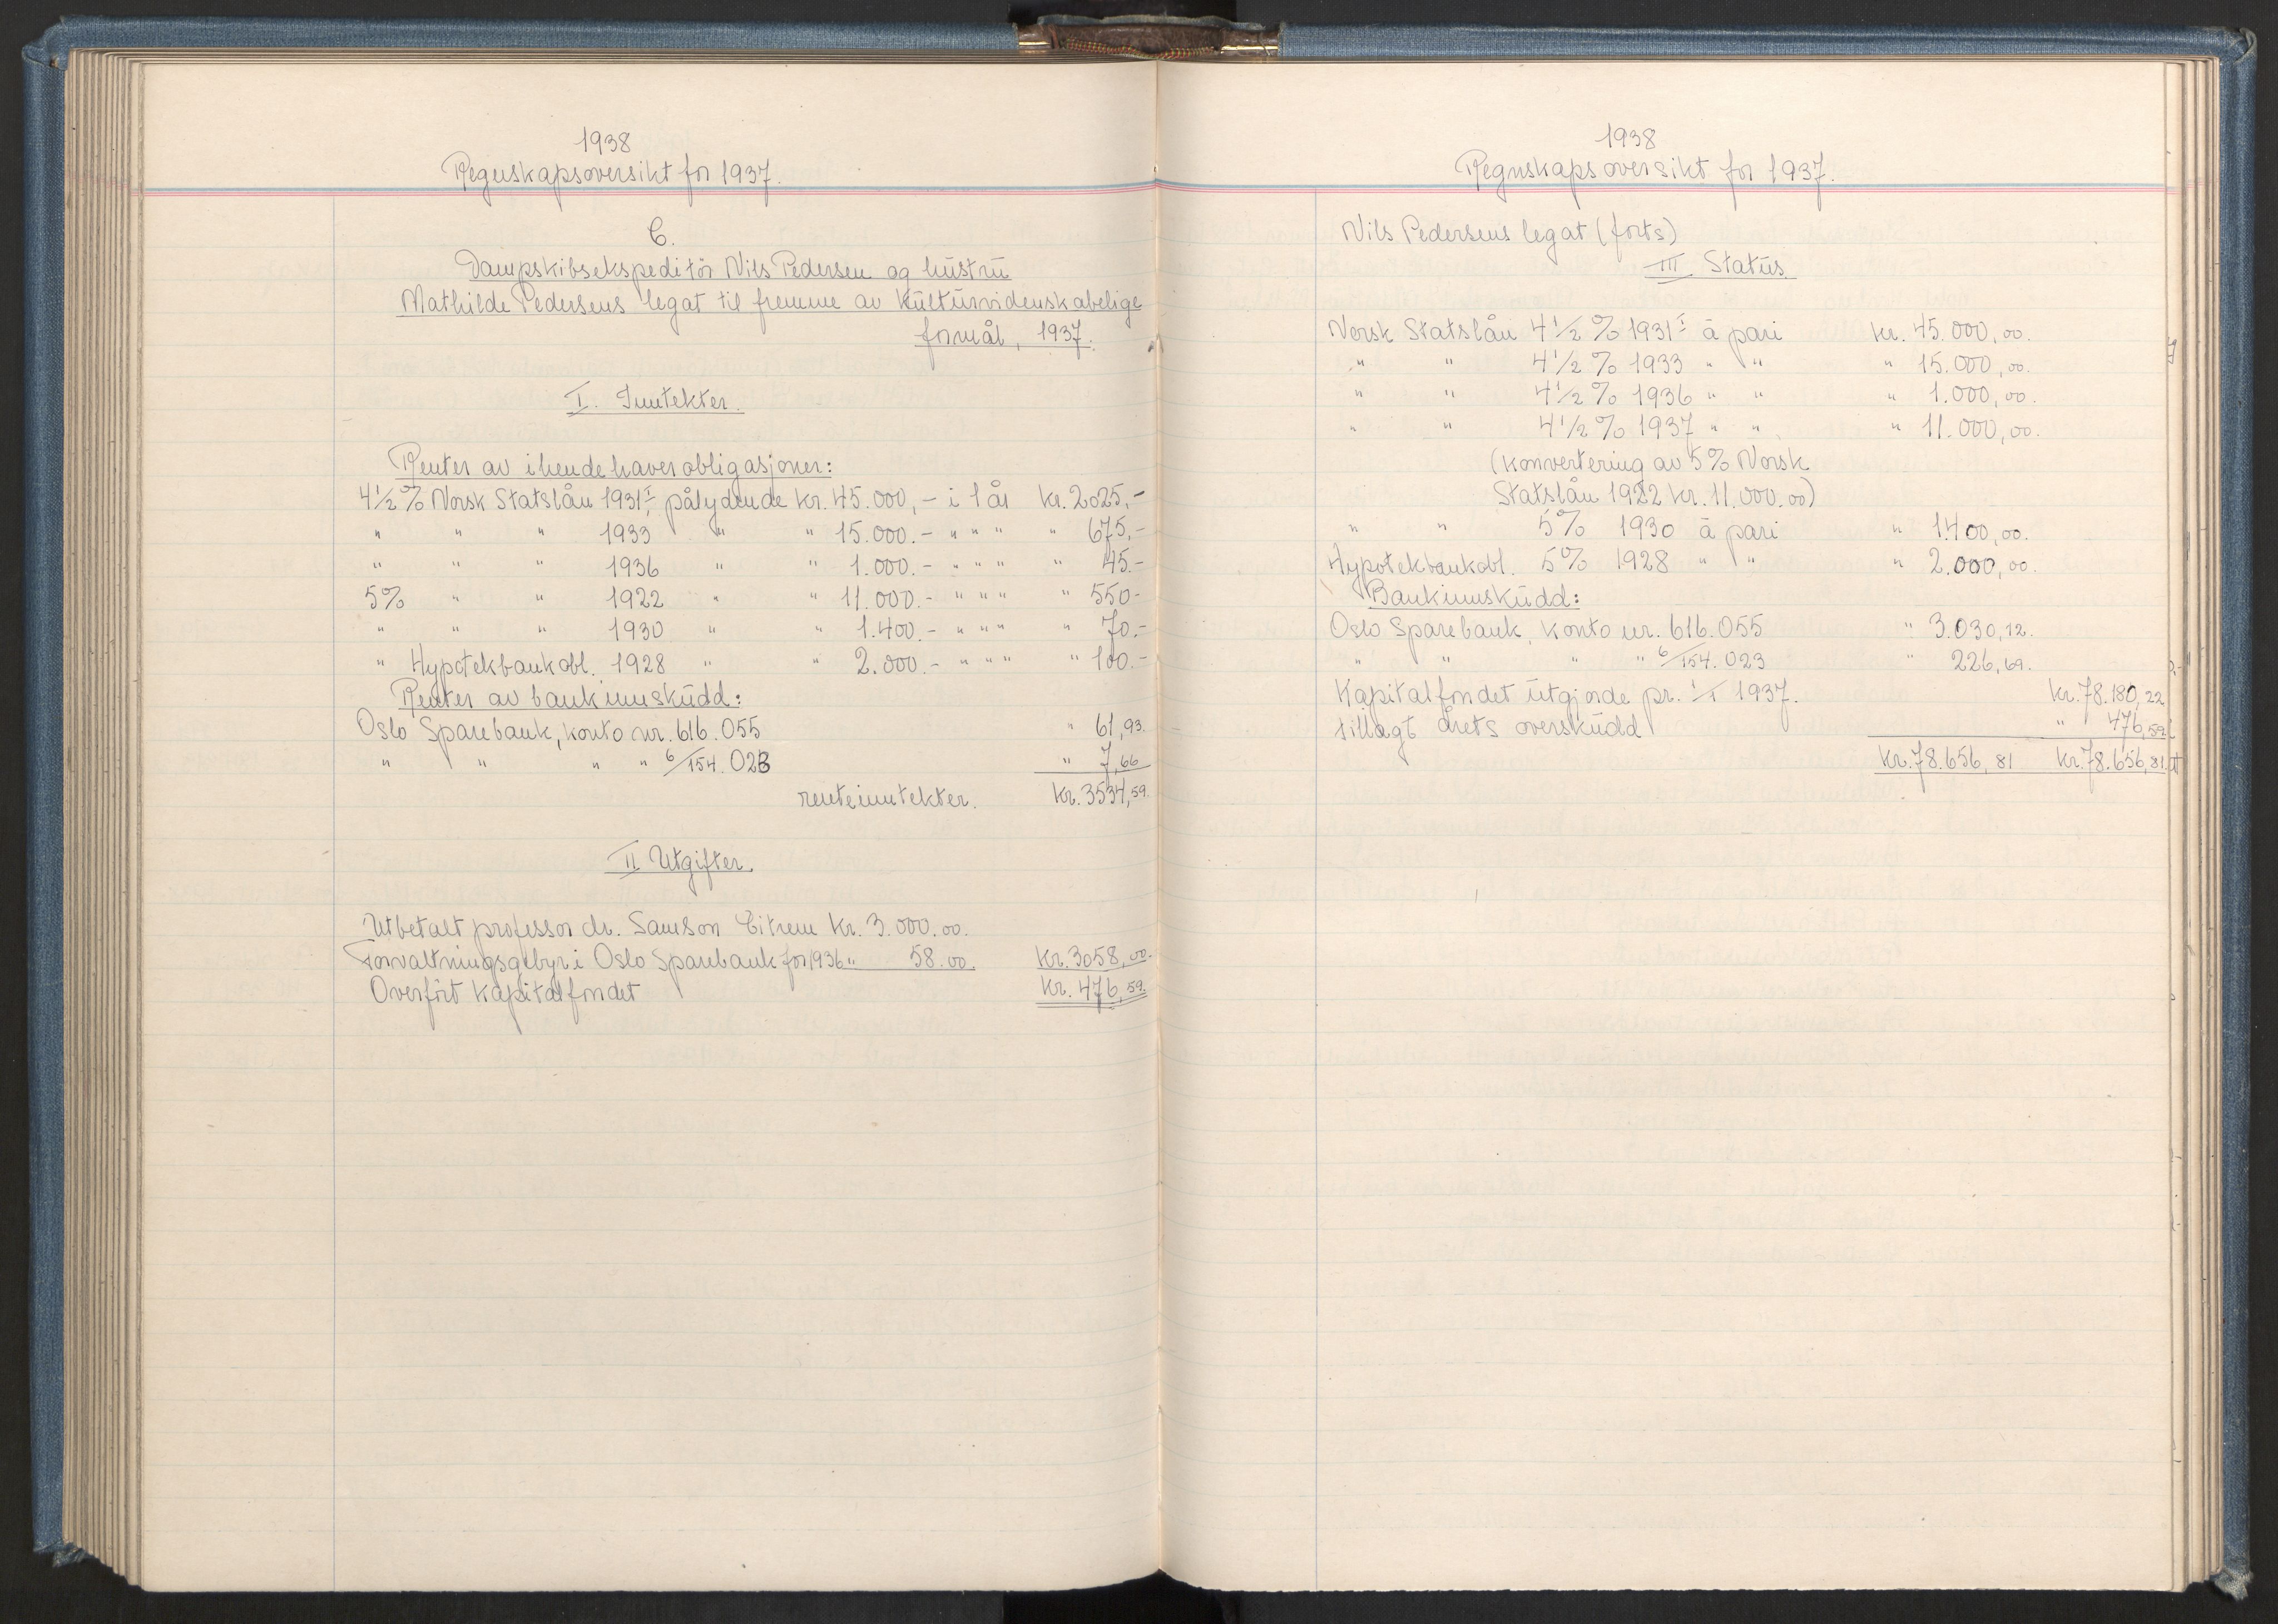 1938
Regnskapsoversikt for 1937.
C.
Dampskibsekspeditör Nils Pedersen og hustru
Mathilde Pedersens legat til fremme av kulturvidenskabelige
formål, 1937.
I. Inntekter.
Renter av ihendehaverobligasjoner:
4 1/2 % Norsk Statslån 1931 I, pålydende kr. 45.000,- i 1 år kr. 2025,-
" " " 1933 " " 15.000.- " " " " 675,-
" " " 1936 " " 1.000.- " " " " 45.-
5% " " 1922 " " 11.000.- " " " " 550-
" " " 1930 " " 1.400.- " " " " 70.-
" Hypotekbankobl. 1928 " " 2.000.- " " " " 100.-
Renter av bankinnskudd:
Oslo Sparebank, konto nr. 616.055 " 61,93.
" " " " 6/154.023 " 7,66
renteinntekter. kr. 3534,59.
II Utgifter.
Utbetalt professor dr. Samson Eitrem kr. 3.000.00.
Forvaltningsgebyr i Oslo Sparebank for 1936 " 58.00. kr. 3058,00.
Overfört kapitalfondet kr. 476,59.
1938
Regnskapsoversikt for 1937.
Nils Pedersens legat (forts)
III Status.
Norsk Statslån 4 1/2 % 1931 I à pari kr. 45.000,00.
" " 4 1/2 % 1933 " " " 15.000,00.
" " 4 1/2 % 1936 " " " 1.000,00.
" " 4 1/2 % 1937 " " " 11.000,00.
(konvertering av 5% Norsk
Statslån 1922 kr. 11.000.00)
" " 5% 1930 à pari " 1400,00.
Hypotekbankobl. 5% 1928 " " " 2.000,00.
Bankinnskudd:
Oslo Sparebank, konto nr. 616.055 " 3.030,12.
" " " " 6/154.023 " 226,69.
Kapitalfondet utgjorde pr. 1/1 1937. kr. 78.180,22
tillagt årets overskudd " 476,59.
kr. 78.656,81 kr. 78.656,81.